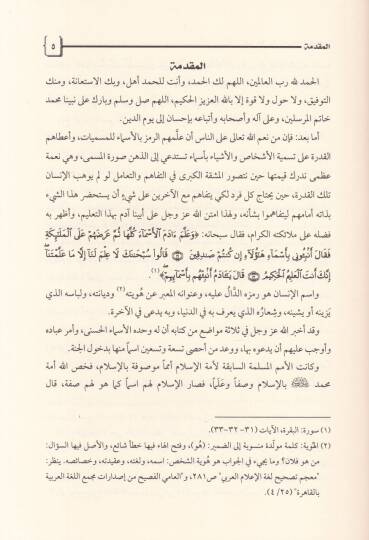 المقدمة
٥
المقدمة
الحمد لله رب العالمين، اللهم لك الحمد، وأنت للحمد أهل، وبك الاستعانة، ومنك
التوفيق، ولا حول ولا قوة إلا بالله العزيز الحكيم، اللهم صل وسلم وبارك على نبينا محمد
خاتم المرسلين، وعلى آله وصحابه وأتباعه بإحسان إلى يوم الدين.
أما بعد: فإن من نعم الله تعالى على الناس أن علَّمهم الرمز بالأسماء للمسميات، وأعطاهم
القدرة على تسمية الأشخاص والأشياء بأسماء تستدعي إلى الذهن صورة المسمى، وهي نعمة
عظمى ندرك قيمتها حين نتصور المشقة الكبرى في التفاهم والتعامل لو لم يوهب الإنسان
تلك القدرة، حين يحتاج كل فرد لكي يتفاهم مع الآخرين على شيء أن يستحضر هذا الشيء
بذاته أمامهم ليتفاهموا بشأنه، ولهذا امتن الله عز وجل على أبينا آدم بهذا التعليم، وأظهر به
فضله على ملائكته الكرام، فقال سبحانه: ﴿وَعَلَّمَ ءَادَمَ ٱلْأَسْمَآءَ كُلَّهَا ثُمَّ عَرَضَهُمْ عَلَى ٱلْمَلَٰٓئِكَةِ
فَقَالَ أَنۢبِـُٔونِى بِأَسْمَآءِ هَٰٓؤُلَآءِ إِن كُنتُمْ صَٰدِقِينَ ۝٣١ قَالُوا۟ سُبْحَٰنَكَ لَا عِلْمَ لَنَآ إِلَّا مَا عَلَّمْتَنَآ ۖ
إِنَّكَ أَنتَ ٱلْعَلِيمُ ٱلْحَكِيمُ ۝٣٢ قَالَ يَٰٓـَٔادَمُ أَنۢبِئْهُم بِأَسْمَآئِهِمْ﴾(١).
واسم الإنسان هو رمزه الدَّالُّ عليه، وعنوانه المعبر عن هُويته(٢) وديانته، ولباسه الذي
يَزينه أو يشينه، وشِعارُه الذي يعرف به في الدنيا، وبه يدعى في الآخرة.
وقد أخبر الله عز وجل في ثلاثة مواضع من كتابه أن له وحده الأسماء الحسنى، وأمر عباده
وأوجب عليهم أن يدعوه بها، ووعد من أحصى تسعة وتسعين اسماً منها بدخول الجنة.
وكانت الأمم المسلمة السابقة لأمة الإسلام أمماً موصوفة بالإسلام، فخص الله أمة
محمد ﷺ بالإسلام وصفاً وعلَماً، فصار الإسلام لهم اسماً كما هو لهم صفة، قال
(١) سورة: البقرة، الآيات (٣١-٣٢-٣٣).
(٢) الهُوِية: كلمة مولَّدة منسوبة إلى الضمير: (هو)، وفتح الهاء فيها خطأ شائع، والأصل فيها السؤال:
من هو فلان؟ وما يجيء في الجواب هو هُوية الشخص: اسمه، ولغته، وعقيدته، وخصائصه. ينظر:
"معجم تصحيح لغة الإعلام العربي" ص٢٨١، و"العامي الفصيح من إصدارات مجمع اللغة العربية
بالقاهرة" (٤/٢٥).